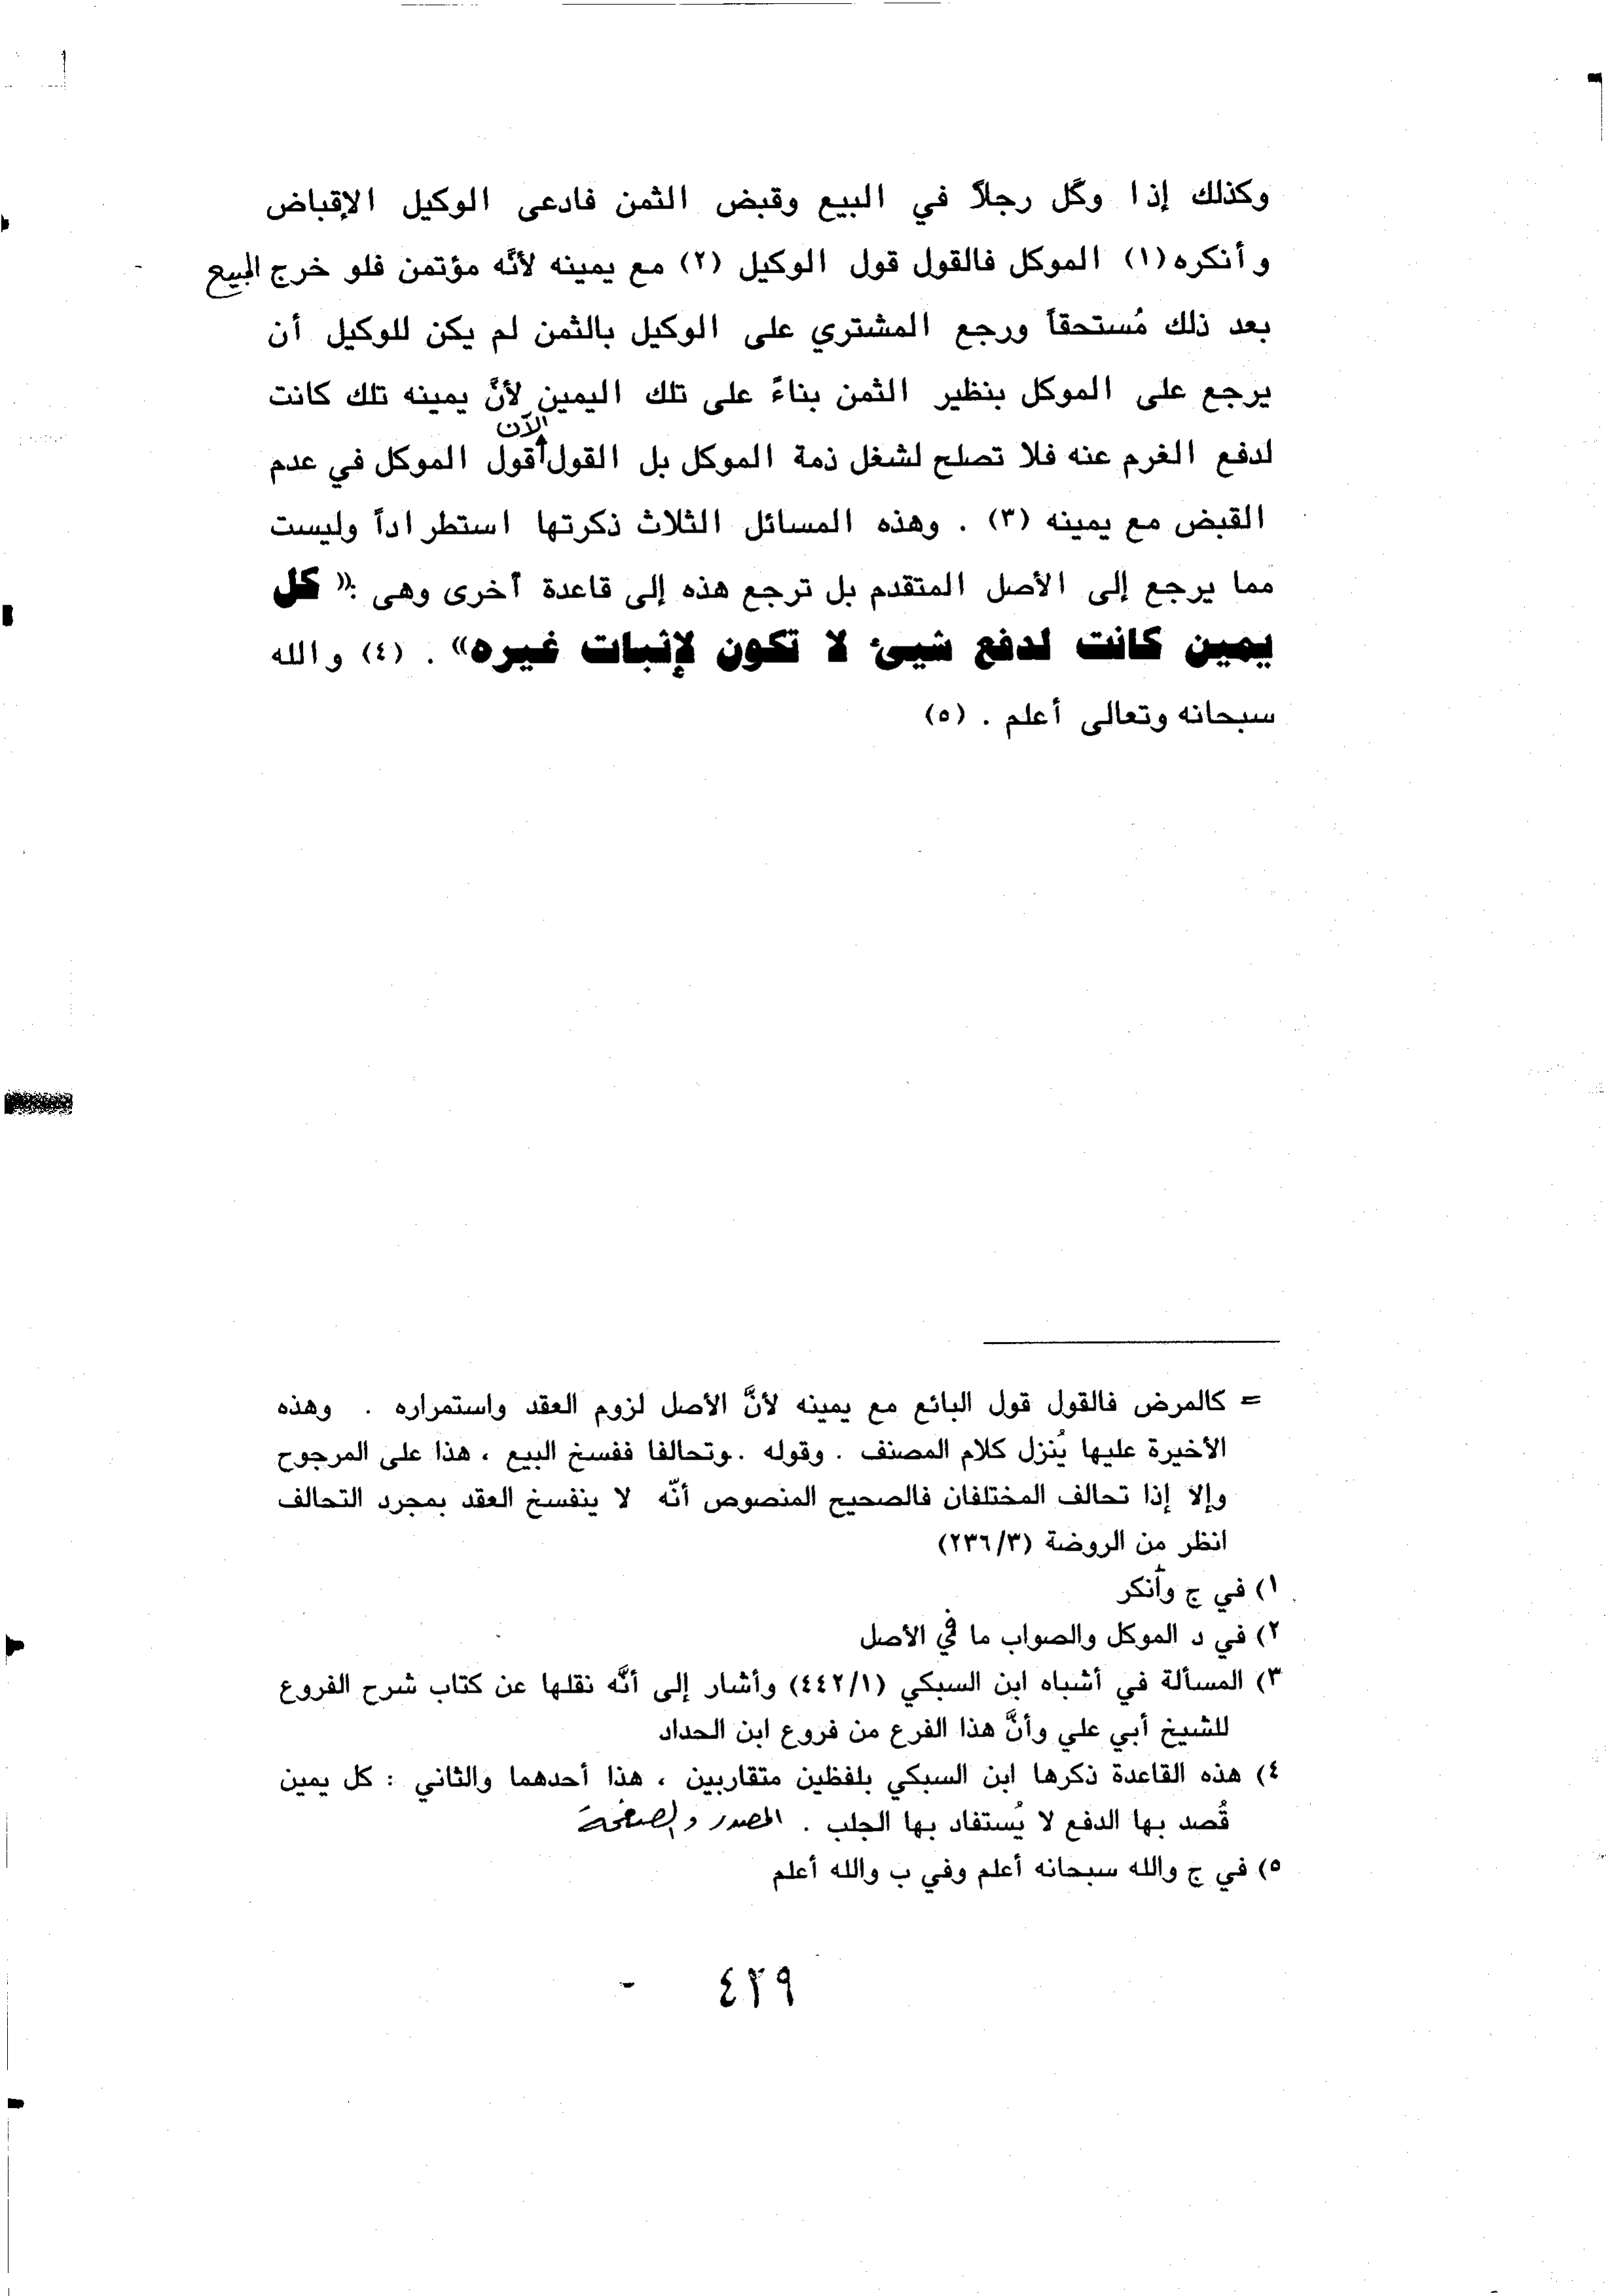 وكذلك إذا وكَّل رجلاً في البيع وقبض الثمن فادعى الوكيل الإقباض
وأنكره(١) الموكل فالقول قول الوكيل (٢) مع يمينه لأنَّه مؤتمن فلو خرج المبيع
بعد ذلك مُستحقاً ورجع المشتري على الوكيل بالثمن لم يكن للوكيل أن
يرجع على الموكل بنظير الثمن بناءً على تلك اليمين لأنَّ يمينه تلك كانت
لدفع الغرم عنه فلا تصلح لشغل ذمة الموكل بل القول الآن قول الموكل في عدم
القبض مع يمينه (٣) . وهذه المسائل الثلاث ذكرتها استطراداً وليست
مما يرجع إلى الأصل المتقدم بل ترجع هذه إلى قاعدة آخرى وهى :« كل
يمين كانت لدفع شيئ لا تكون لإثبات غيره» . (٤) والله
سبحانه وتعالى أعلم . (٥)
= كالمرض فالقول قول البائع مع يمينه لأنَّ الأصل لزوم العقد واستمراره . وهذه
الأخيرة عليها يُنزل كلام المصنف . وقوله .وتحالفا ففسخ البيع ، هذا على المرجوح
وإلا إذا تحالف المختلفان فالصحيح المنصوص أنّه لا ينفسخ العقد بمجرد التحالف
انظر من الروضة (٢٣٦/٣)
١) في ج وأنكر
٢) في د الموكل والصواب ما في الأصل
٣) المسألة في أشباه ابن السبكي (٤٤٢/١) وأشار إلى أنَّه نقلها عن كتاب شرح الفروع
للشيخ أبي علي وأنَّ هذا الفرع من فروع ابن الحداد
٤) هذه القاعدة ذكرها ابن السبكي بلفظين متقاربين ، هذا أحدهما والثاني : كل يمين
قُصد بها الدفع لا يُستفاد بها الجلب . المصدر والصفحة
٥) في ج والله سبحانه أعلم وفي ب والله أعلم
٤٢٩